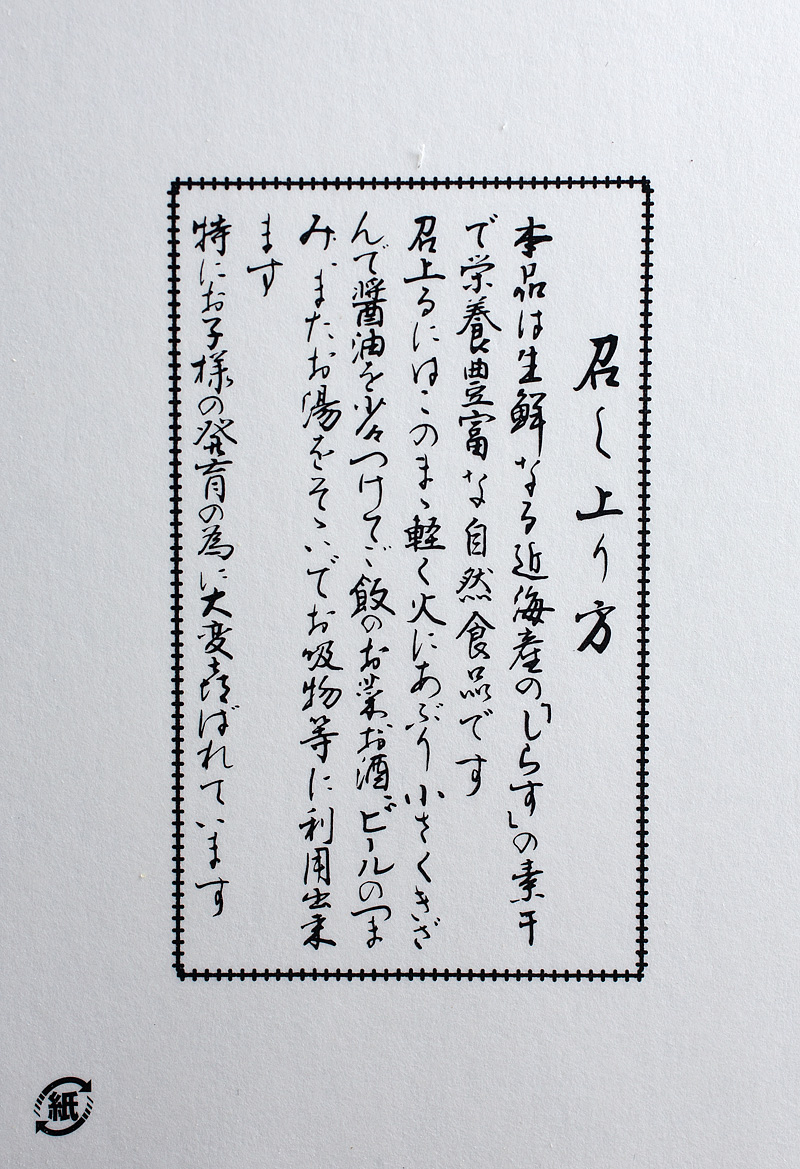 召し上り方
本品は生鮮なる近海産の「しらす」の素干
で栄養豊富な自然食品です
召上るにはこのまゝ軽く火にあぶり小さくきざ
んで醤油を少々つけてご飯のお菜お酒、ビールのつま
み、またお湯をそゝいでお吸物等に利用出来
ます
特にお子様の発育の為に大変喜ばれています
紙